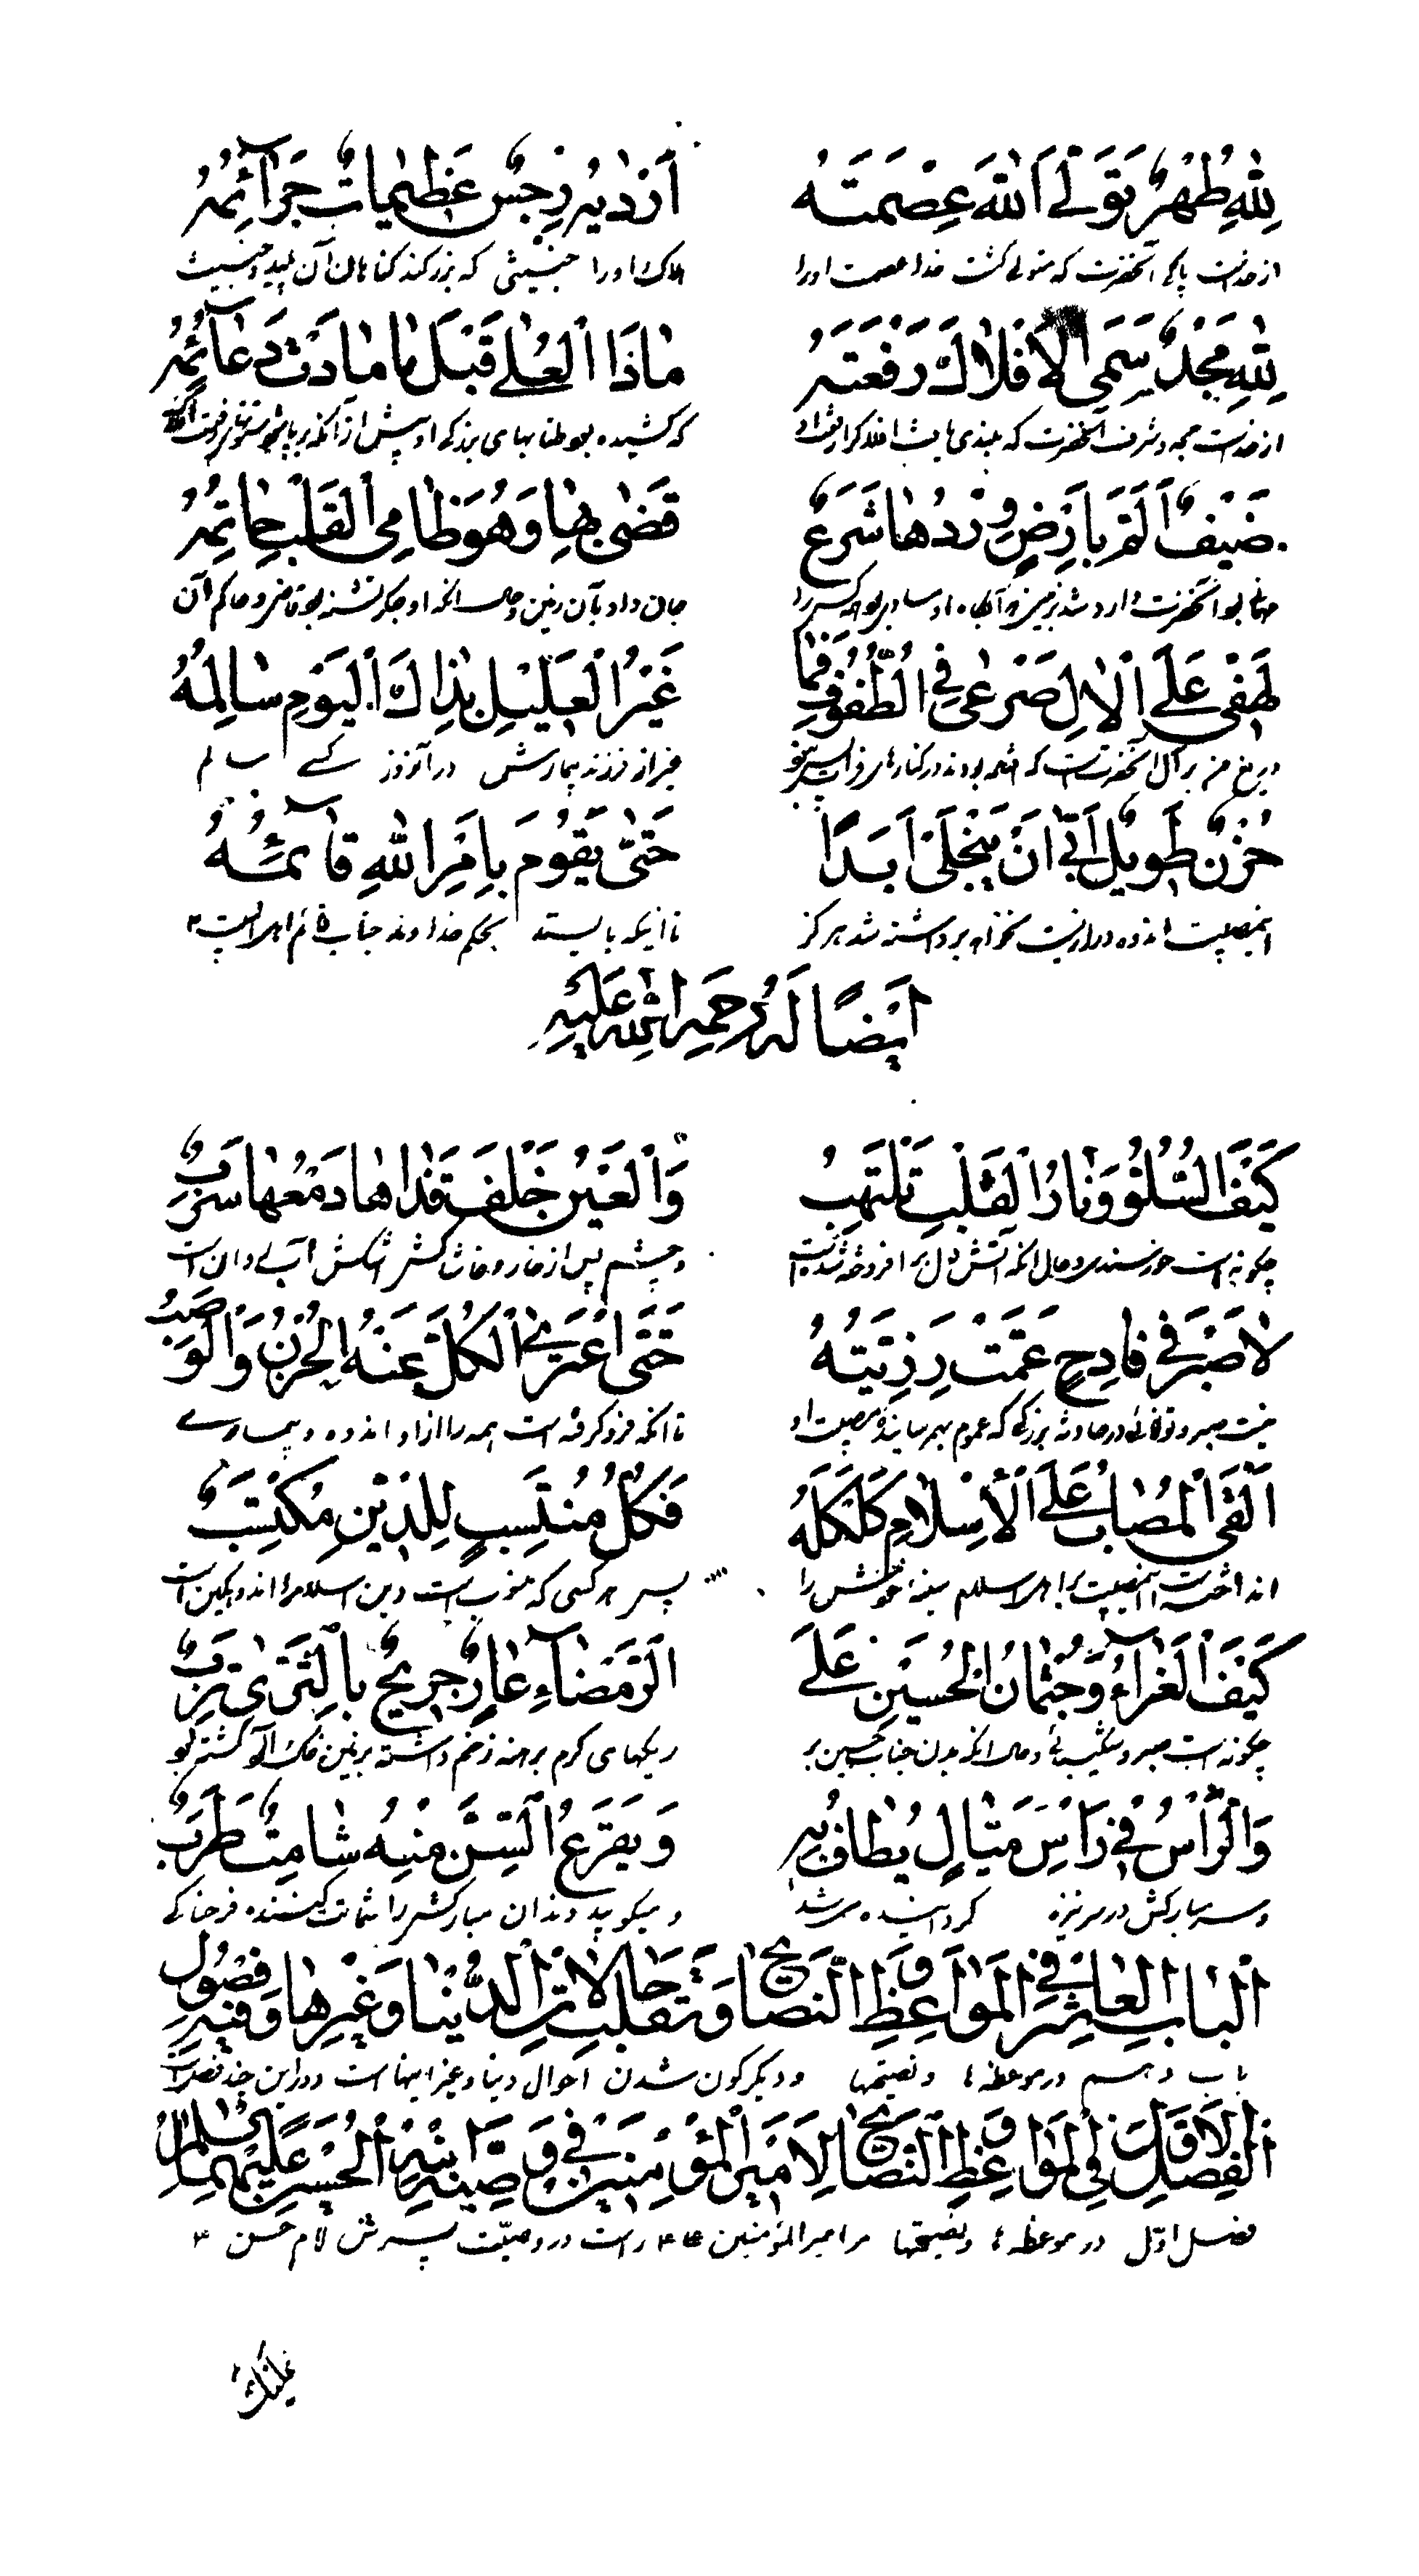 لِلّٰهِ طُهْرٌ تَوَلَّى اللّٰهُ عِصْمَتَهُ اَرْدٰيهُ رِجْسٌ عَظِيمَاتٌ جَرَآئِمُهُ
از خداست پاکی آنحضرت که متولی گشت خدا عصمت او را هلاک او را خبیثی که بزرگند گناهان آن پلید و خبیث
لِلّٰهِ مَجْدٌ سَمَى الْاَفْلَاكَ رَفْعَتُهُ مَاذَا الْعُلٰى قَبْلَ مَا مَادَتْ دَعَآئِمُهُ
از خداست مجد و شرف آنحضرت که
ضَيْفٌ اَلَمَّ بِاَرْضٍ وِرْدُهَا شَرَعٌ قَضٰى بِهَا وَهُوَ ظَامِي الْقَلْبِ حَاتِمُهُ
جان داد بآن زمین و حال آنکه او جگر تشنه بود
لَهْفِي عَلَى الْاٰلِ صَرْعٰى فِي الطُّفُوفِ فَمَا غَيْرُ الْعَلِيلِ بِذَاكَ الْيَوْمِ سَالِمُهُ
دریغ من بر آل آنحضرتست که افتاده بودند در کنارهای فرات غیر از فرزند بیمارش در آنروز کسی سالم
حُزْنٌ طَوِيلٌ اَبٰى اَنْ يَنْجَلِيَ اَبَدًا حَتّٰى يَقُومَ بِاَمْرِ اللّٰهِ قَآئِمُهُ
اینمصیبت اندوه درازیست نخواهد برداشته شد هرگز تا اینکه بایستد بحکم خداوند جناب قائم اهل البیت
اَيْضًا لَهُ رَحْمَةُ اللّٰهِ عَلَيْهِ
كَيْفَ السُّلُوُّ وَنَارُ الْقَلْبِ تَلْتَهِبُ وَالْعَيْنُ خَلْفَ قَذَاهَا دَمْعُهَا سَرِبُ
چگونه است خورسندی و حال آنکه آتش دل بر افروخته شده است و چشم پس از خار و خاشاکش اشکش روان است
لَا صَبْرَ فِي فَادِحٍ عَمَّتْ رَزِيَّتُهُ حَتّٰى اعْتَرَى الْكُلَّ عَنْهُ الْحُزْنُ وَالْوَصَبُ
نیست صبر و توانائی در حادثه بزرگی که عموم بهم رسانیده مصیبت او تا آنکه فرو گرفته است همه را از او اندوه و بیماری
اَلْقَى الْمُصَابُ عَلَى الْاِسْلَامِ كَلْكَلَهُ فَكُلُّ مُنْتَسِبٍ لِلدِّيْنِ مُكْتَئِبٌ
انداخته است اینمصیبت بر اهل اسلام سینه خویش را پس هر کسی که منسوبست بدین اسلام اندوهگین است
كَيْفَ الْعَزَآءُ وَجُثْمَانُ الْحُسَيْنِ عَلَى الرَّمْضَآءِ عَارٍ جَرِيحٌ بِالثَّرٰى تَرِبُ
چگونه است صبر و شکیبائی و حال آنکه بدن جناب حسین بر ریگهای گرم برهنه زخم داشته بزمین خاک آلود گشته بود
وَالرَّأْسُ فِي رَأْسِ مَيَّالٍ يُطَافُ بِهِ وَيَقْرَعُ السِّنَّ مِنْهُ شَامِتٌ طَرِبُ
و سر مبارکش در سر نیزه گردانیده می شد و میکوبید دندان مبارکش را شماتت کننده فرحناکی
اَلْبَابُ الْعَاشِرُ فِي الْمَوَاعِظِ وَالنَّصَايِحِ وَتَقَلُّبِ حَالَاتِ الدُّنْيَا وَغَيْرِهَا وَفِيهِ فُصُولٌ
باب دهم در موعظه ها و نصیحتها و دیگرگون شدن احوال دنیا و غیر اینها است و در این چند فصل است
اَلْفَصْلُ الْاَوَّلُ فِي الْمَوَاعِظِ وَالنَّصَايِحِ لِاَمِيرِ الْمُؤْمِنِينَ فِي وَصِيَّةِ ابْنِهِ الْحُسَيْنِ عَلَيْهِمَا السَّلَامُ
فصل اول در موعظه ها و نصیحتها مر امیر المؤمنین ع راست در وصیت پسرش امام حسن ع